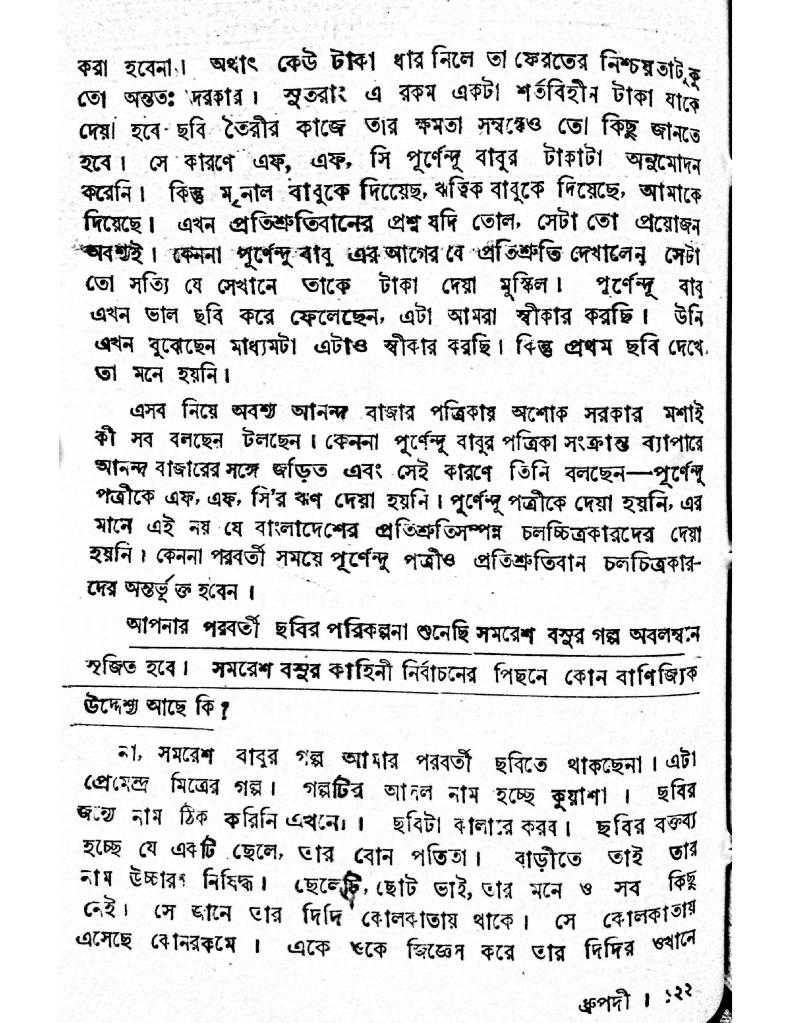 করা হবেনা। অথাৎ কেউ টাকা ধার নিলে তা ফেরতের নিশ্চয়তাটুকু
তো অন্তত: দরকার। সুতরাং এ রকম একটা শর্তবিহীন টাকা যাকে
দেয়া হবে ছবি তৈরীর কাজে তার ক্ষমতা সম্বন্ধেও তো কিছু জানতে
হবে। সে কারণে এফ, এফ, সি পূর্ণেন্দু বাবুর টাকাটা অনুমোদন
করেনি। কিন্তু মৃনাল বাবুকে দিয়েছে, ঋত্বিক বাবুকে দিয়েছে, আমাকে
দিয়েছে। এখন প্রতিশ্রুতিবানের প্রশ্ন যদি তোল, সেটা তো প্রয়োজন
অবশ্যই। কেননা পূর্ণেন্দু বাবু এর আগের যে প্রতিশ্রুতি দেখালেন সেটা
তো সত্যি যে সেখানে তাকে টাকা দেয়া মুস্কিল। পূর্ণেন্দু বাবু
এখন ভাল ছবি করে ফেলেছেন, এটা আমরা স্বীকার করছি। উনি
এখন বুঝেছেন মাধ্যমটা এটাও স্বীকার করছি। কিন্তু প্রথম ছবি দেখে
তা মনে হয়নি।
এসব নিয়ে অবশ্য আনন্দ বাজার পত্রিকায় অশোক সরকার মশাই
কী সব বলছেন টলছেন। কেননা পূর্ণেন্দু বাবুর পত্রিকা সংক্রান্ত ব্যাপারে
আনন্দ বাজারের সঙ্গে জড়িত এবং সেই কারণে তিনি বলছেন—পূর্ণেন্দু
পত্রীকে এফ, এফ, সি'র ঋণ দেয়া হয়নি। পূর্ণেন্দু পত্রীকে দেয়া হয়নি, এর
মানে এই নয় যে বাংলাদেশের প্রতিশ্রুতিসম্পন্ন চলচ্চিত্রকারদের দেয়া
হয়নি। কেননা পরবর্তী সময়ে পূর্ণেন্দু পত্রীও প্রতিশ্রুতিবান চলচিত্রকার-
দের অন্তর্ভূক্ত হবেন।
আপনার পরবর্তী ছবির পরিকল্পনা শুনেছি সমরেশ বসুর গল্প অবলম্বনে
সৃজিত হবে। সমরেশ বসুর কাহিনী নির্বাচনের পিছনে কোন বাণিজ্যিক
উদ্দেশ্য আছে কি?
না, সমরেশ বাবুর গল্প আমার পরবর্তী ছবিতে থাকছেনা। এটা
প্রেমেন্দ্র মিত্রের গল্প। গল্পটির আসল নাম হচ্ছে কুয়াশা। ছবির
জন্যে নাম ঠিক করিনি এখনো। ছবিটা কালারে করব। ছবির বক্তব্য
হচ্ছে যে একটি ছেলে, তার বোন পতিতা। বাড়ীতে তাই তার
নাম উচ্চারণ নিষিদ্ধ। ছেলেটি, ছোট ভাই, তার মনে ও সব কিছু
নেই। সে জানে তার দিদি কোলকাতায় থাকে। সে কোলকাতায়
এসেছে কোনরকমে। একে ওকে জিজ্ঞেস করে তার দিদির ওখানে
ধ্রুপদী। ১২২